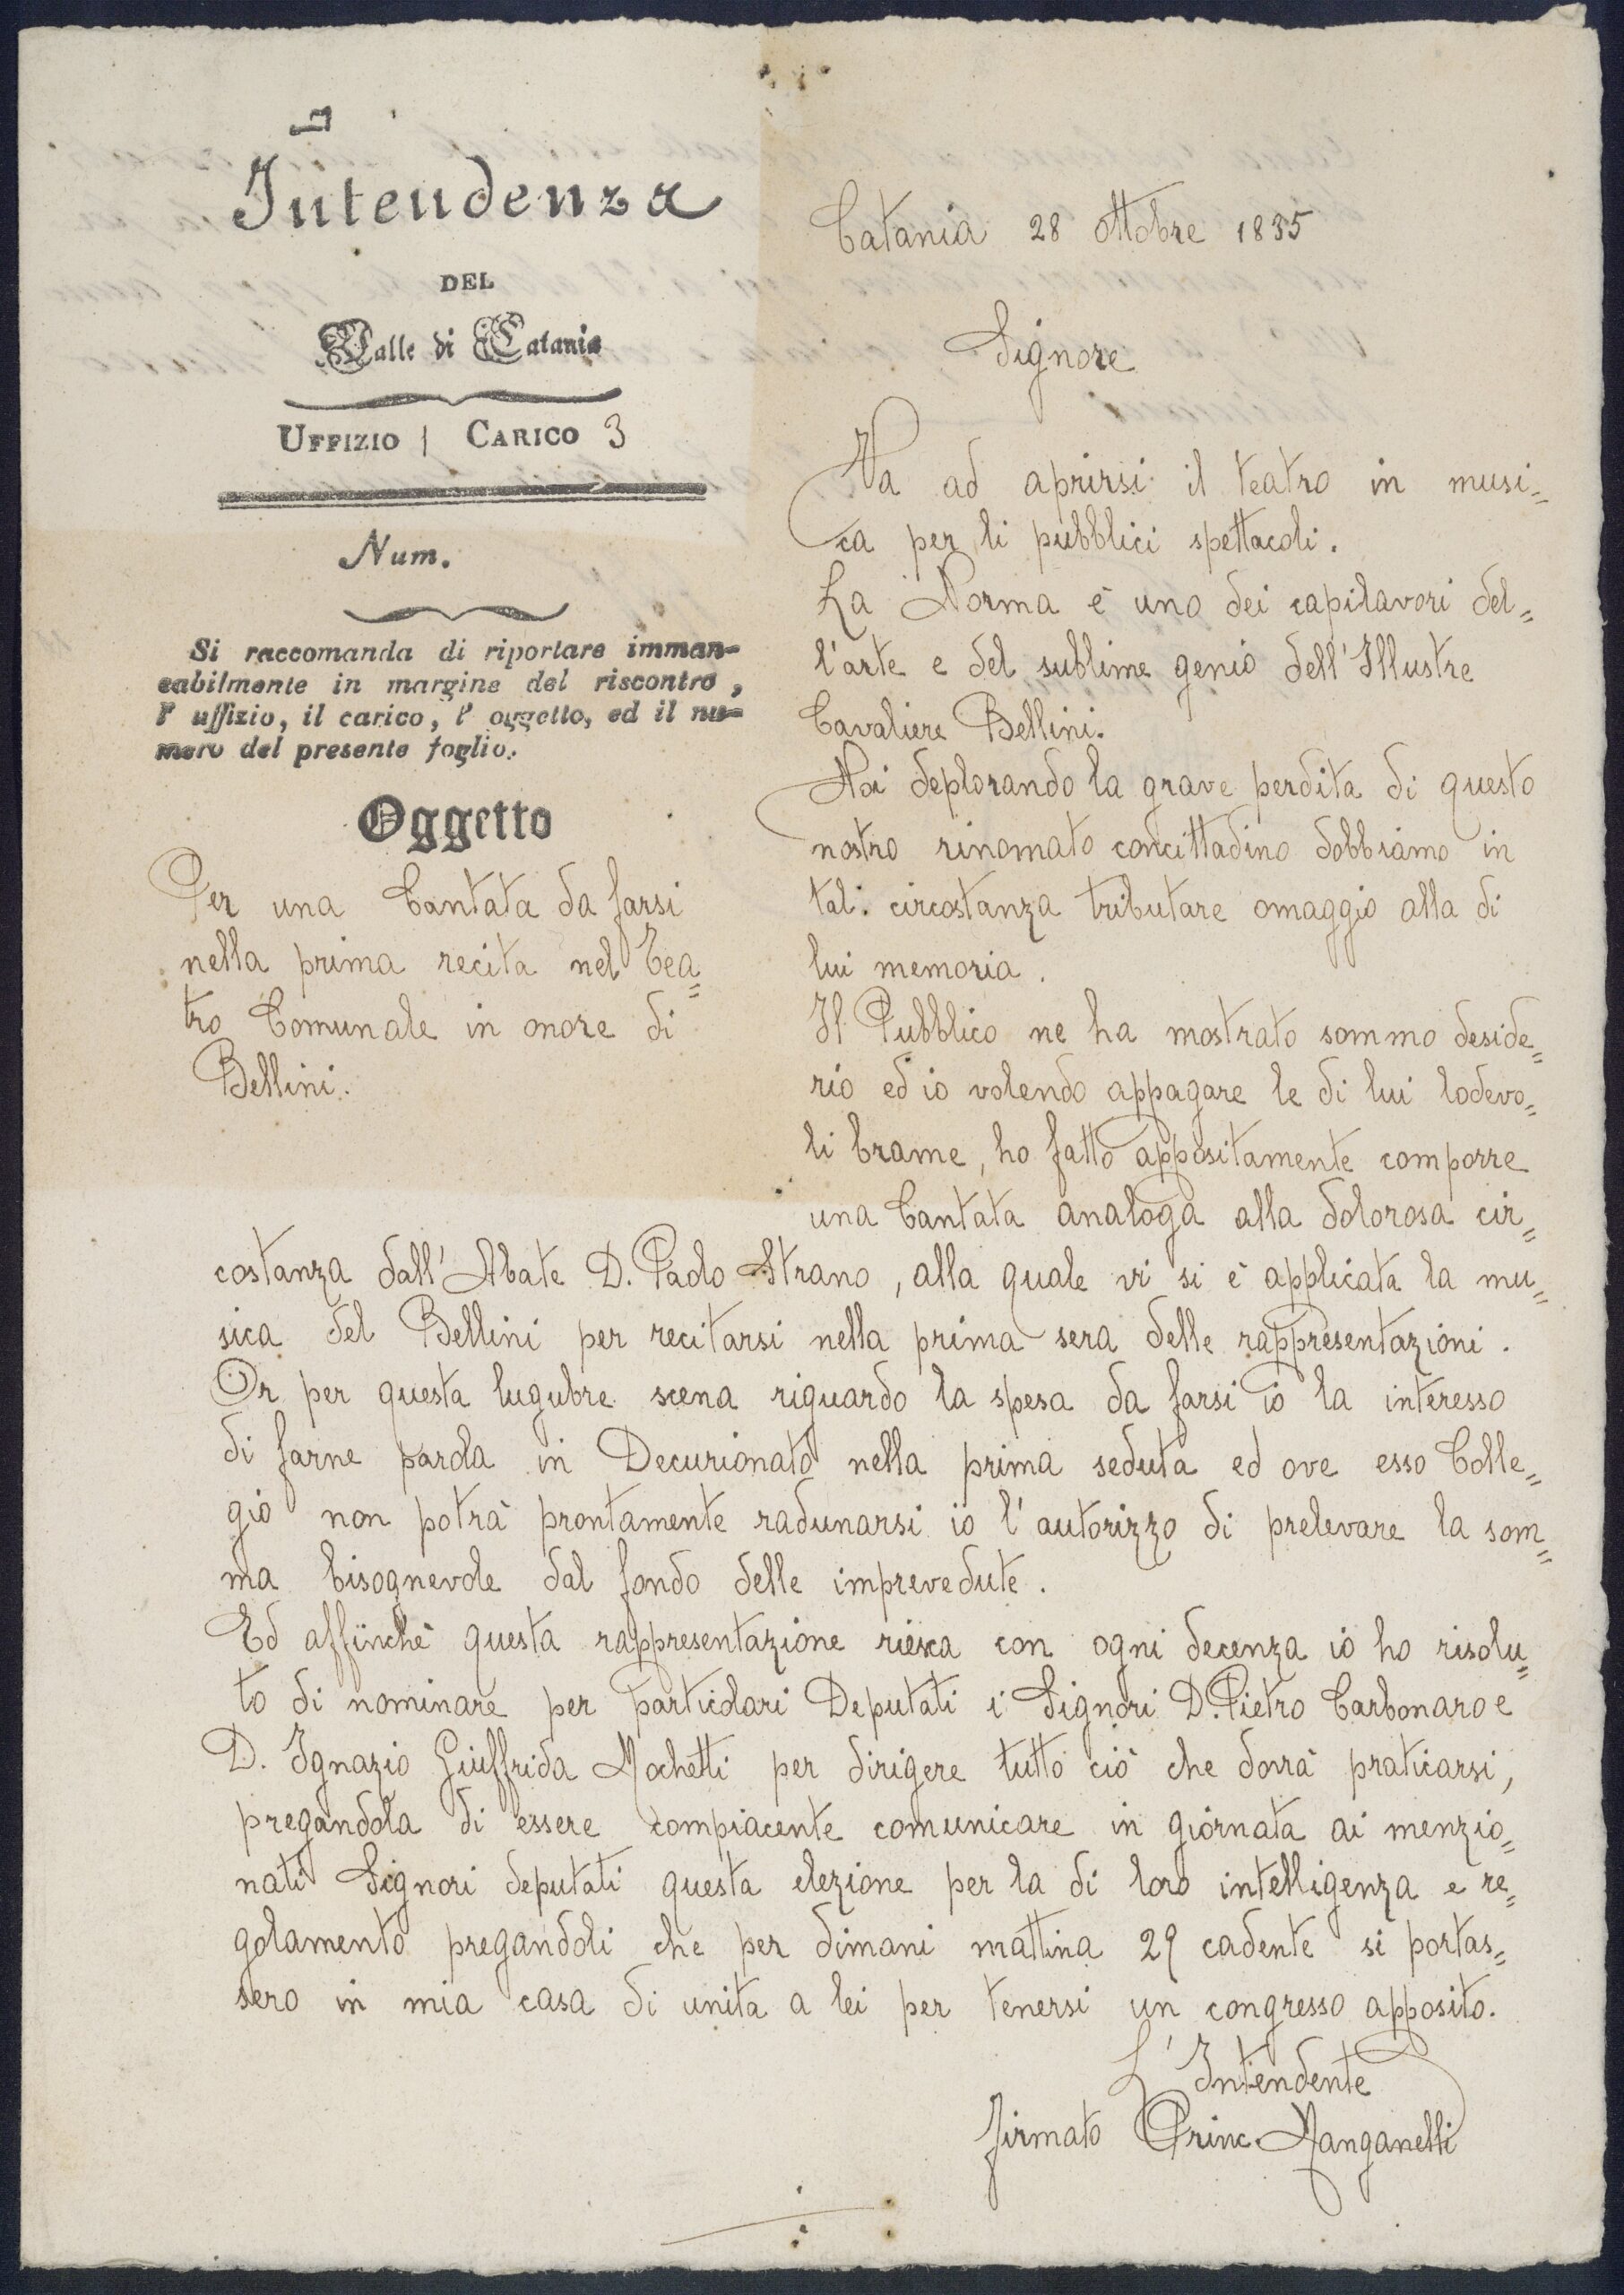 Intendenza
DEL
Valle di Catania
UFFIZIO 1 CARICO 3
Num.
Si raccomanda di riportare imman=
cabilmente in margine del riscontro,
l' uffizio, il carico, l' oggetto, ed il nu=
mero del presente foglio.
Oggetto
Per una Cantata da farsi
nella prima recita nel Tea=
tro Comunale in onore di
Bellini.
Catania 28 Ottobre 1835
Signore
Va ad aprirsi il teatro in musi=
ca per li pubblici spettacoli.
La Norma è uno dei capilavori del=
l'arte e del sublime genio dell'Illustre
Cavaliere Bellini.
Noi deplorando la grave perdita di questo
nostro rinomato concittadino dobbiamo in
tal. circostanza tributare omaggio alla di
lui memoria.
Il Pubblico ne ha mostrato sommo deside=
rio ed io volendo appagare le di lui lodevo=
li brame, ho fatto appositamente comporre
una Cantata analoga alla dolorosa cir=
costanza dall'Abate D. Paolo Strano, alla quale vi si è applicata la mu=
sica del Bellini per recitarsi nella prima sera delle rappresentazioni.
Or per questa lugubre scena riguardo la spesa da farsi io la interesso
di farne parola in Decurionato nella prima seduta ed ove esso Colle=
gio non potrà prontamente radunarsi io l'autorizzo di prelevare la som=
ma bisognevole dal fondo delle imprevedute.
Ed affinchè questa rappresentazione riesca con ogni decenza io ho risolu=
to di nominare per particolari Deputati i Signori D. Pietro Carbonaro e
D. Ignazio Giuffrida Mochetti per dirigere tutto ciò che dovrà praticarsi,
pregandola di essere compiacente comunicare in giornata ai menzio=
nati Signori deputati questa elezione per la di loro intelligenza e re=
golamento pregandoli che per dimani mattina 29 cadente si portas=
sero in mia casa di unita a lei per tenersi un congresso apposito.
L'Intendente
firmato Princ Manganelli